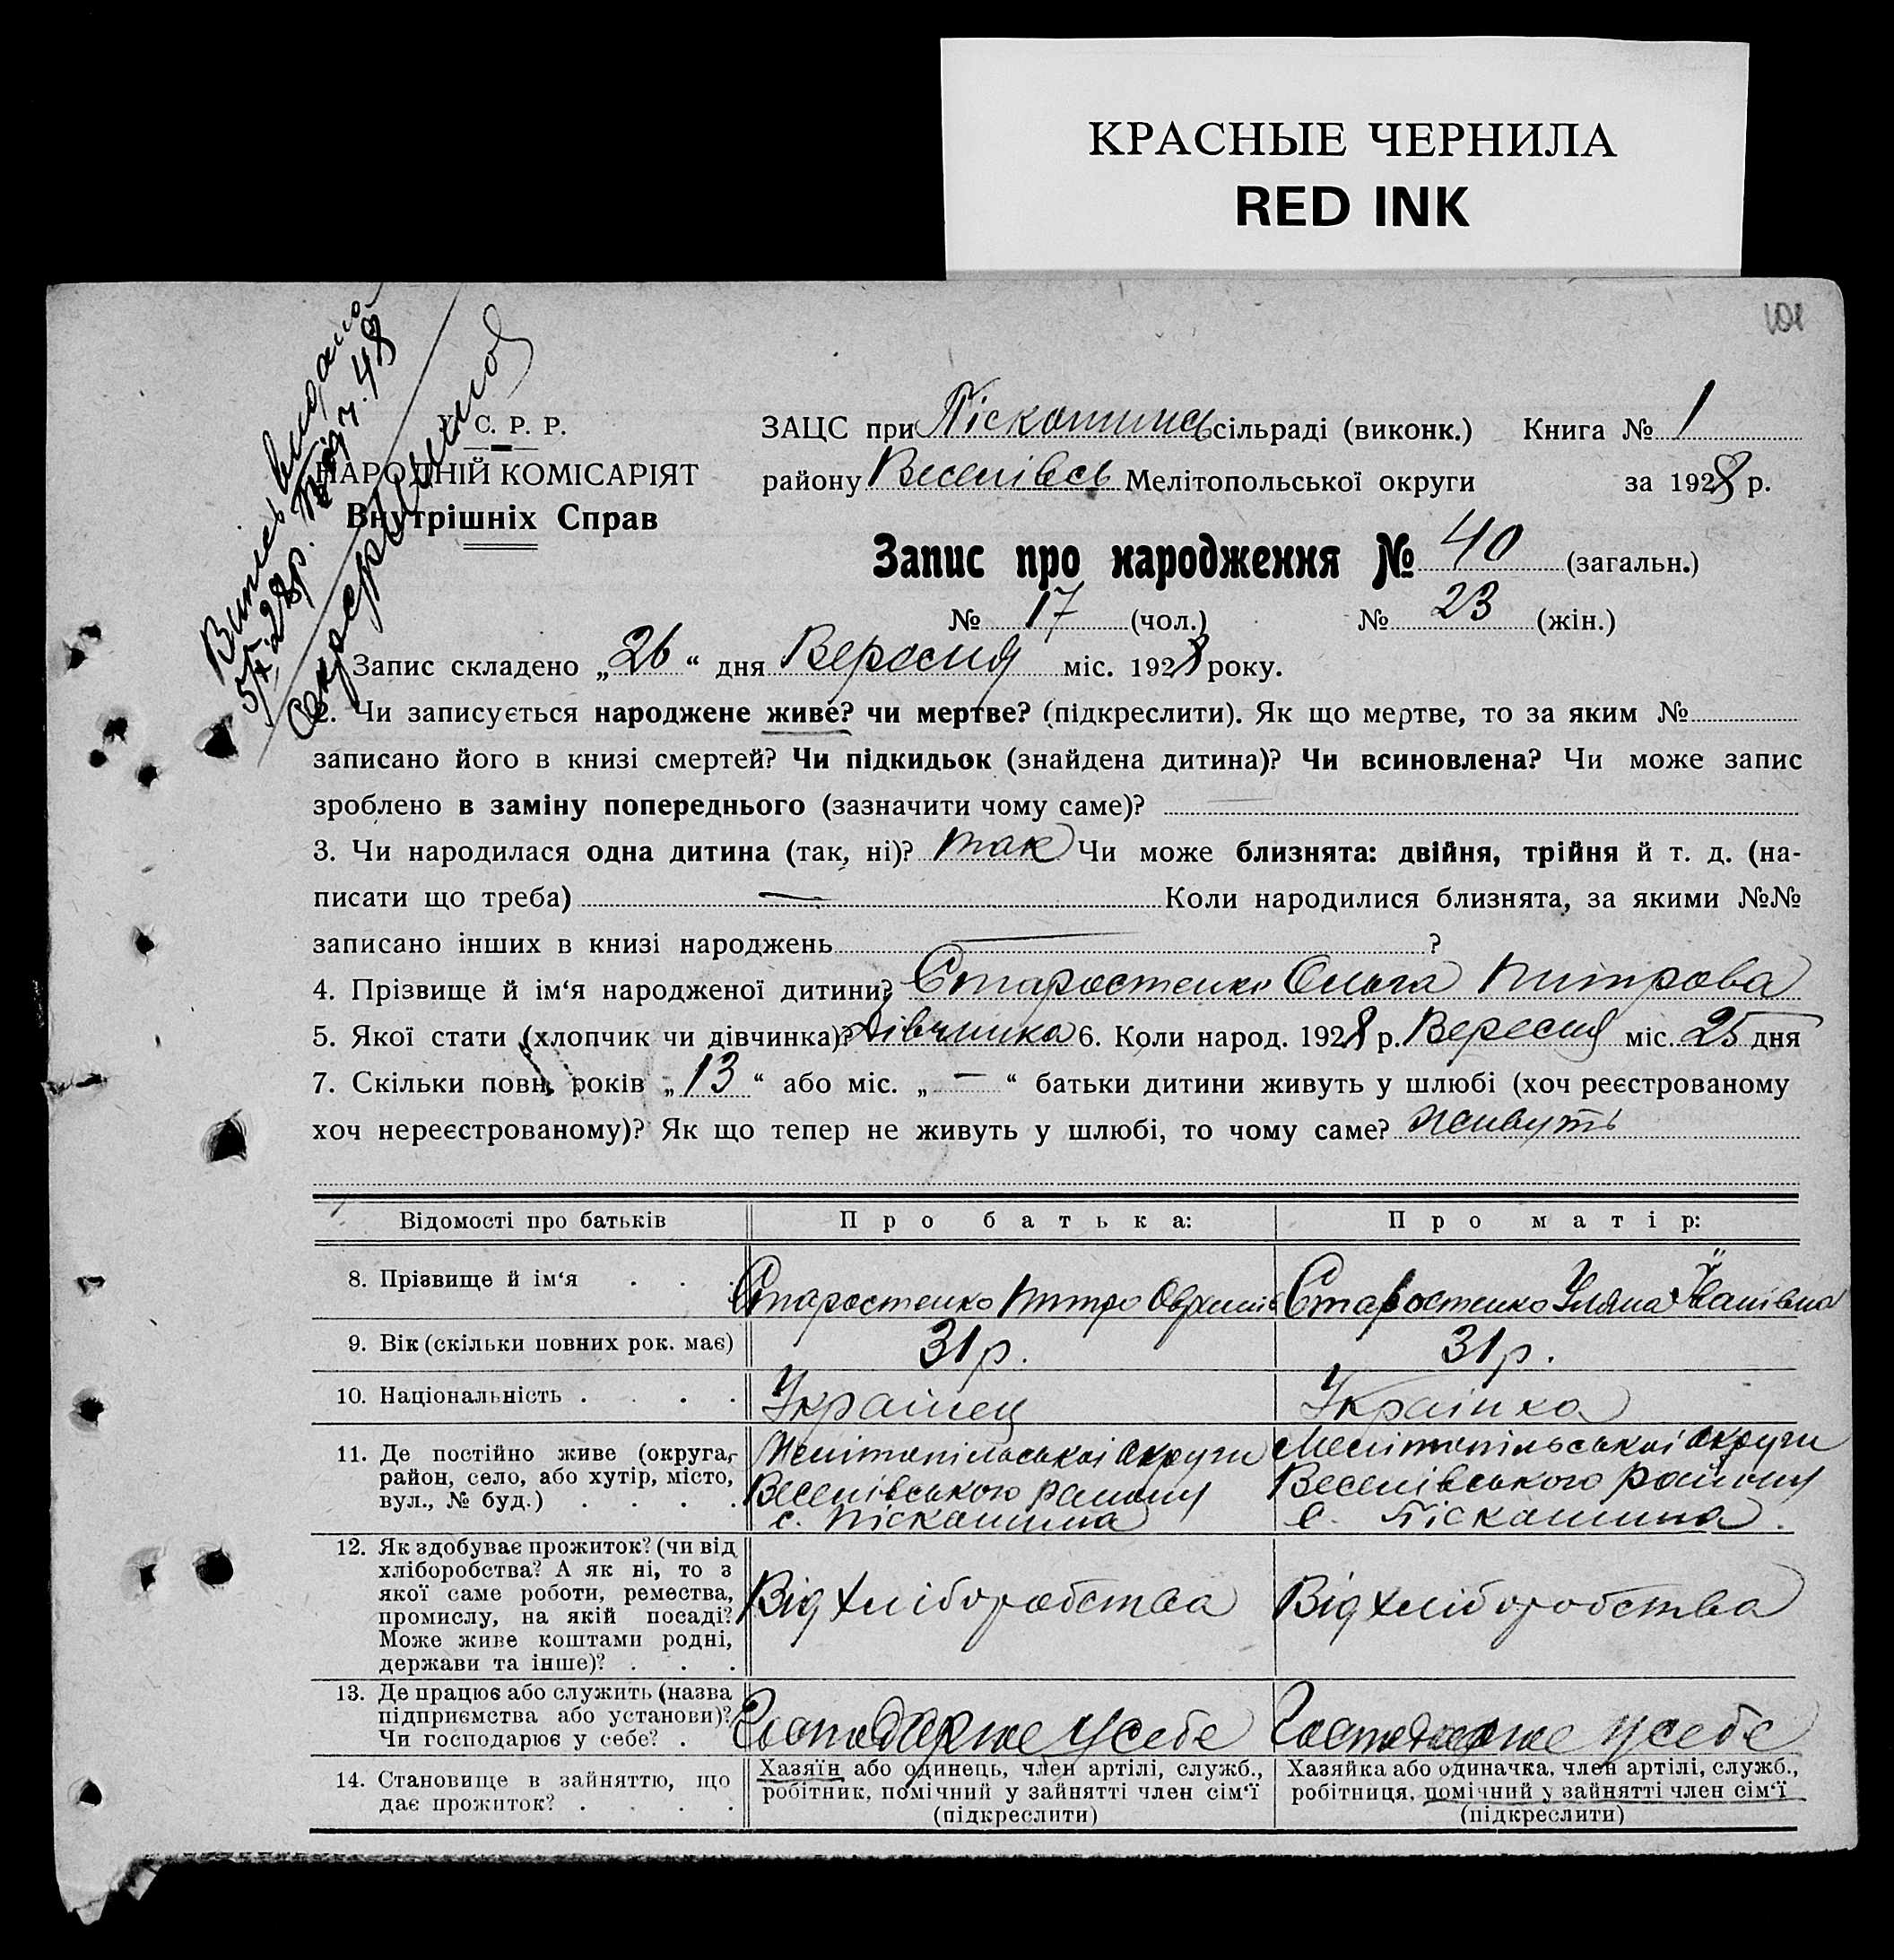 КРАСНЫЕ ЧЕРНИЛА
RED INK
101
Витяг видано
5/X 28р. 48
Секрет
У. С. Р. Р.
НАРОДНІЙ КОМІСАРІЯТ
Внутрішніх Справ
ЗАЦС при Піскошинсь сільраді (виконк.) Книга № 1
району Веселівсь Мелітопольської округи за 1928 р.
Запис про народження № 40 (загальн.)
№ 17 (чол.) № 23 (жін.)
Запис складено „26“ дня Вересня міс. 1928 року.
2. Чи записується народжене живе? чи мертве? (підкреслити). Як що мертве, то за яким №
записано його в книзі смертей? Чи підкидьок (знайдена дитина)? Чи всиновлена? Чи може запис
зроблено в заміну попереднього (зазначити чому саме)?
3. Чи народилася одна дитина (так, ні)? так Чи може близнята: двійня, трійня й т. д. (на-
писати що треба) — Коли народилися близнята, за якими №№
записано інших в книзі народжень — ?
4. Прізвище й ім‘я народженої дитини? Старостенко Ольга Питрова
5. Якої стати (хлопчик чи дівчинка)? Дівчинка 6. Коли народ. 1928 р. Вересня міс. 25 дня
7. Скільки повн. років „13“ або міс. „—“ батьки дитини живуть у шлюбі (хоч реєстрованому
хоч нереєстрованому)? Як що тепер не живуть у шлюбі, то чому саме? живуть
Відомості про батьків Про батька: Про матір:
8. Прізвище й ім‘я . . . Старостенко Питро Старостенко Уляна Іванівна
9. Вік (скільки повних рок. має) 31 р. 31 р.
10. Національність . . . . Українец Українка
11. Де постійно живе (округа, район, село, або хутір, місто, вул., № буд.) . . . .
Мелітопільської округи
Веселівського району
с. Піскошина
Мелітопільської округи
Веселівського району
с. Піскошина.
12. Як здобуває прожиток? (чи від
хліборобства? А як ні, то з
якої саме роботи, ремества,
промислу, на якій посаді?
Може живе коштами родні,
держави та інше)? . . .
Від хліборобства Від хліборобства
13. Де працює або служить (назва
підприємства або установи)?
Чи господарює у себе? .
Господарює у себе Господарює у себе
14. Становище в зайняттю, що
дає прожиток? . . . .
Хазяїн або одинець, член артілі, служб.,
робітник, помічний у зайнятті член сім‘ї
(підкреслити)
Хазяйка або одиначка, член артілі, служб.,
робітниця, помічний у зайнятті член сім‘ї
(підкреслити)